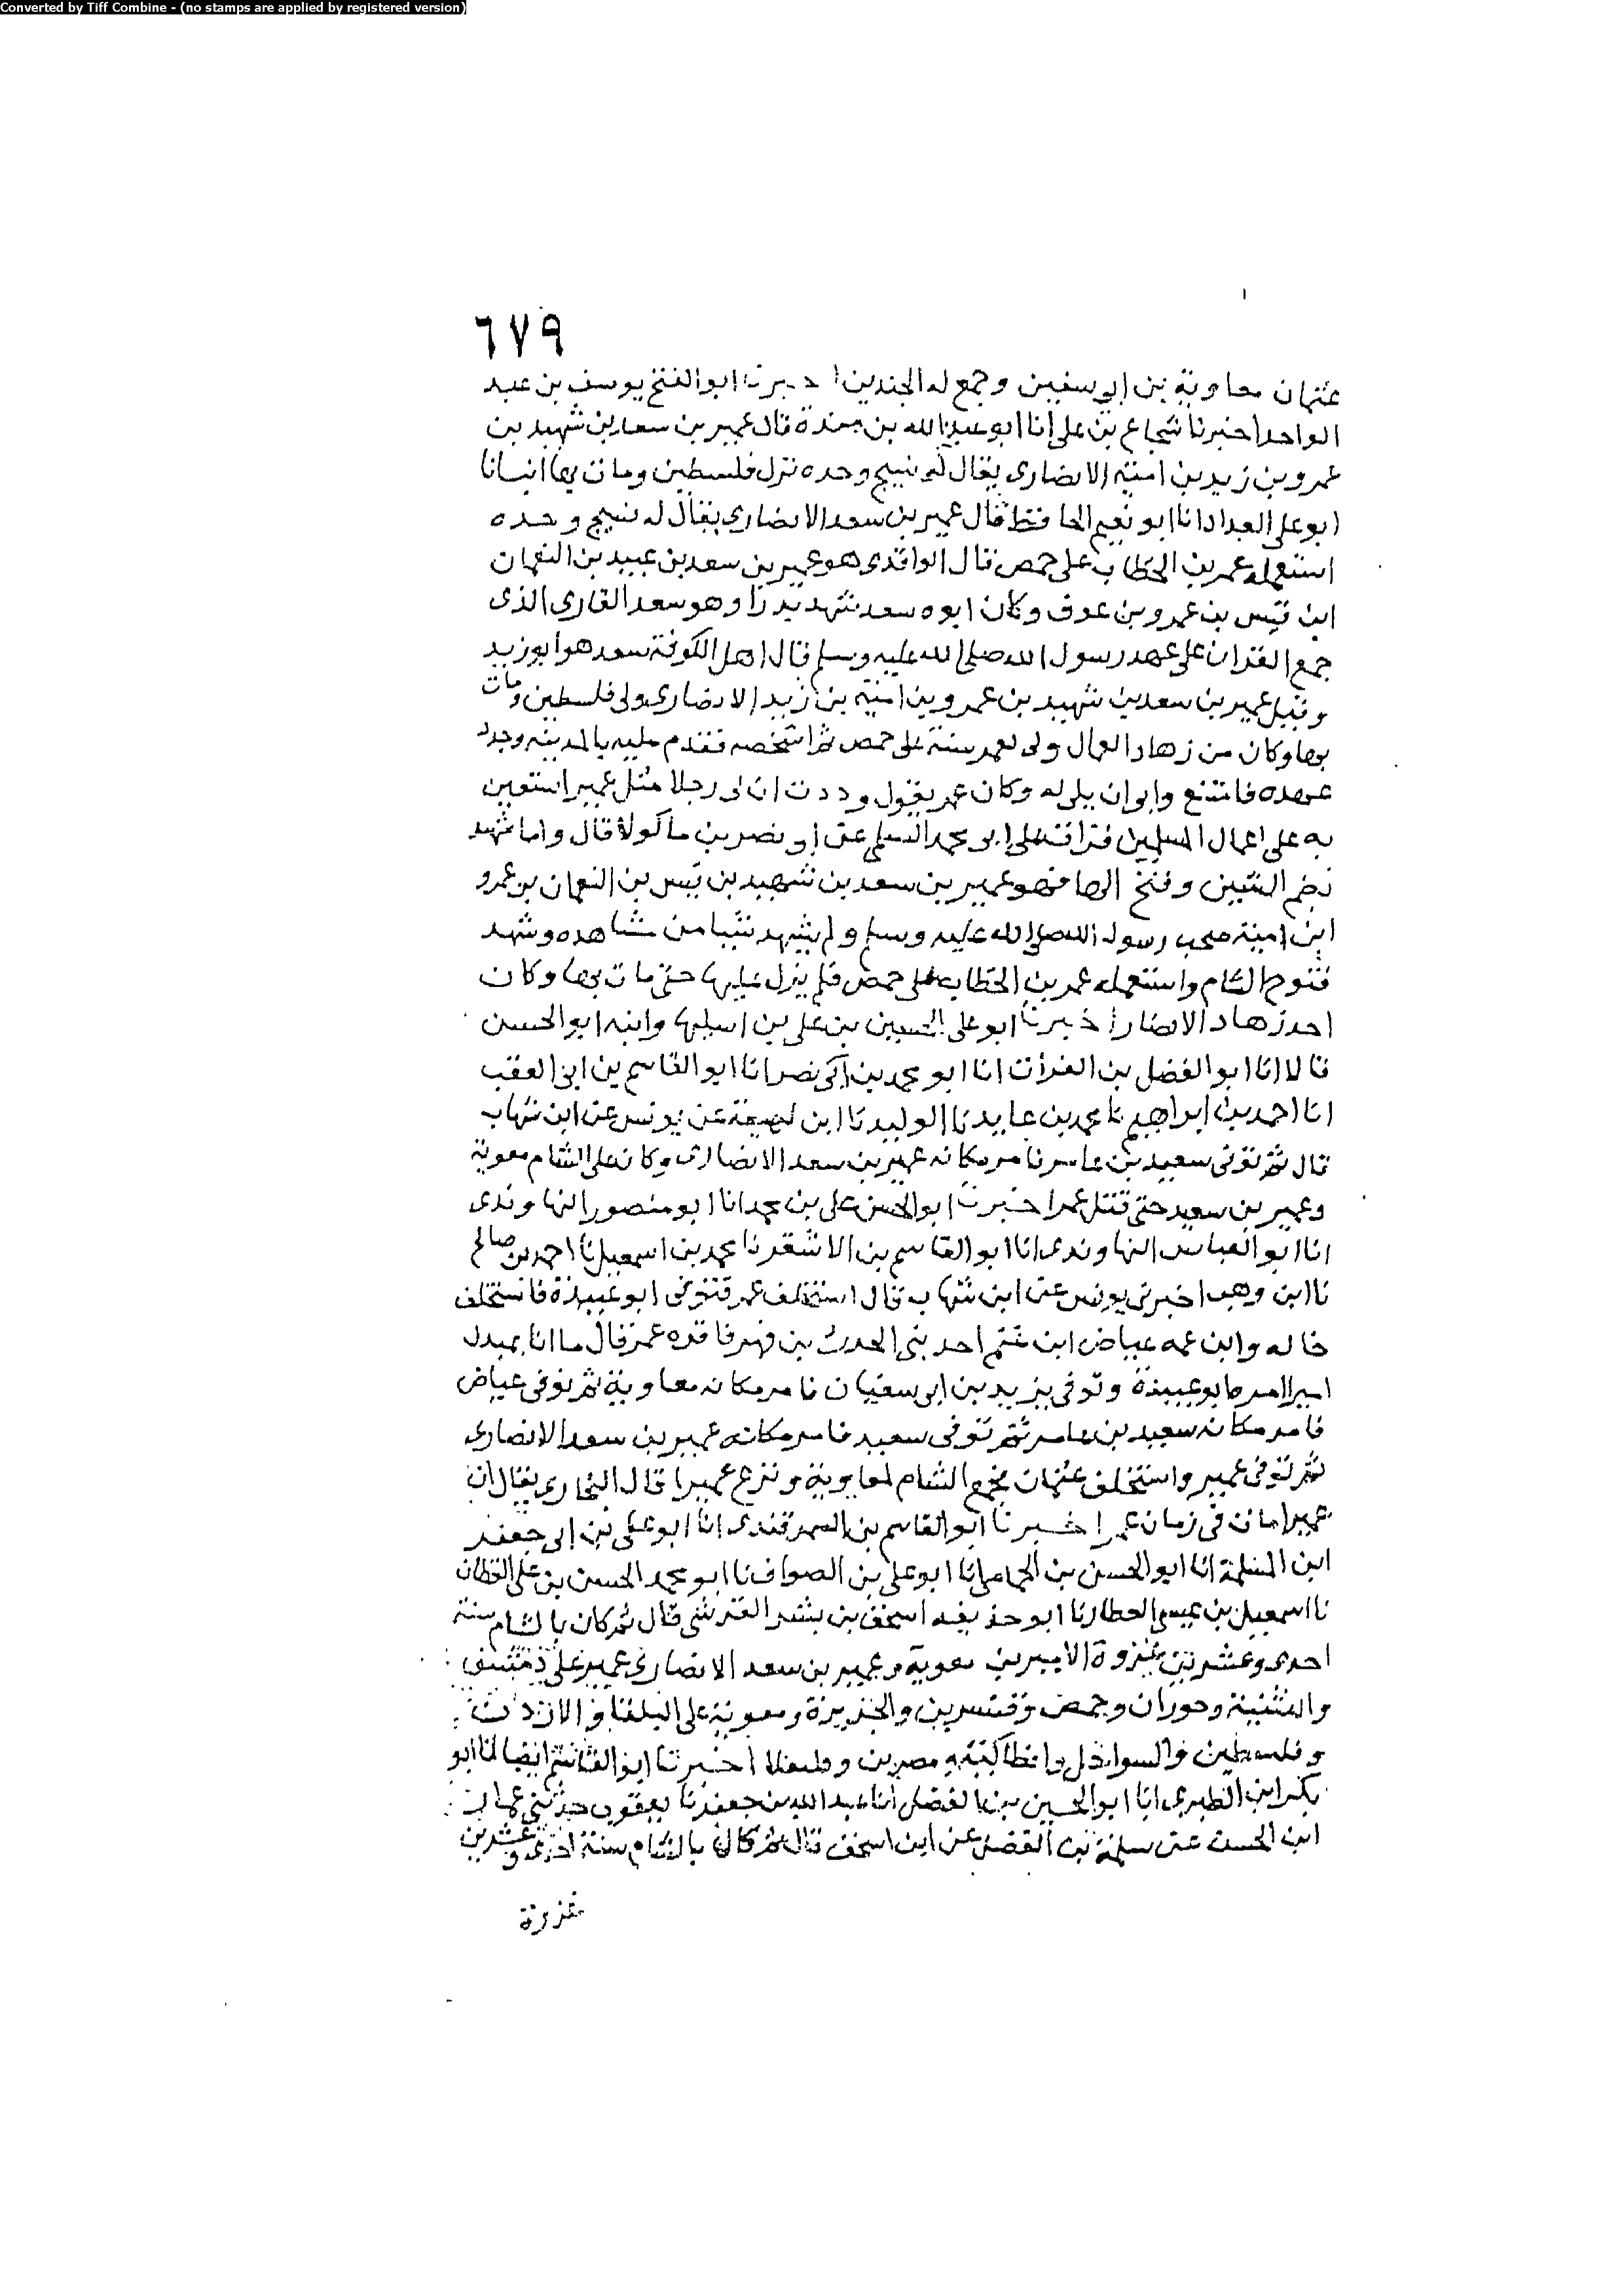 Converted by Tiff Combine - (no stamps are applied by registered version)
٦٧٩
عثمان معاوية بن ابى سفين وجمع له الجندين اخبرنا ابو الفتح يوسف بن عبد
الواحد اخبرنا شجاع بن على انا ابو عبد الله بن مندة قال عمير بن سعد بن شهيد بن
عمرو بن زيد بن امية الانصارى يقال له نسيج وحده نزل فلسطين ومات بها انبانا
ابو على الحداد انا ابو نعيم الحافظ قال عمير بن سعد الانصارى يقال له نسيج وحده
استعمله عمر بن الخطاب على حمص قال الواقدى هو عمير بن سعد بن عبيد بن النعمان
ابن قيس بن عمرو بن عوف وكان ابوه سعد شهد بدرا وهو سعد القارى الذى
جمع القران على عهد رسول الله صلى الله عليه وسلم قال اهل الكوفة سعد هو ابو زيد
وقيل عمير بن سعد بن شهيد بن عمرو بن امية بن زيد الانصارى ولى فلسطين ومات
بها وكان من زهاد العمال ولى لعمر سنة على حمص ثم اشخصه فقدم عليه بالمدينه وجدد
عهده فامتنع وابى ان يلى له وكان عمر يقول وددت ان لى رجلا مثل عمير استعين
به على اعمال المسلمين قرات على ابى محمد السلمى عن ابى نصر بن ماكولا قال واما شهيد
بضم الشين وفتح الها فهو عمير بن سعد بن شهيد بن قيس بن النعمان بن عمرو
ابن امية صحب رسول الله صلى الله عليه وسلم ولم يشهد شيا من مشاهده وشهد
فتوح الشام واستعمله عمر بن الخطاب على حمص فلم يزل عليها حتى مات بها وكان
احد زهاد الانصار اخبرنا ابو على الحسين بن على بن اشليها وابنه ابو الحسن
قالا انا ابو الفضل بن الفرات انا ابو محمد بن ابى نصر انا ابو القاسم بن ابى العقب
انا احمد بن ابراهيم نا محمد بن عايد نا الوليد نا ابن لهيعة عن يونس عن ابن شهاب
قال ثم توفى سعيد بن عامر فامر مكانه عمير بن سعد الانصارى وكان على الشام معوية
وعمير بن سعيد حتى قتل عمر اخبرنا ابو الحسن على بن محمد انا ابو منصور النهاوندى
انا ابو العباس النهاوندى انا ابو القاسم بن الاشقر نا محمد بن اسمعيل نا احمد بن صالح
نا ابن وهب اخبرنى يونس عن ابن شهاب قال استخلف عمر فتوفى ابو عبيدة فاستخلف
خاله وابن عمه عياض ابن غنم احد بنى الحرث بن فهر فاقره عمر فال ما انا بمبدل
اميرا امره ابو عبيدة وتوفى يزيد بن ابى سفيان فامر مكانه معاوية ثم توفى عياض
فامر مكانه سعيد بن عامر ثم توفى سعيد فامر مكانه عمير بن سعد الانصارى
ثم توفى عمير واستخلف عثمان فجمع الشام لمعاوية ونزع عميرا قال البخارى يقال ان
عميرا مات فى زمان عمر اخبرنا ابو القاسم بن السمرقندى انا ابو على بن ابى جعفر
ابن المسلمة انا ابو الحسن بن الحمامى انا ابو على بن الصواف نا ابو محمد الحسن بن على القطان
نا اسمعيل بن عيسى العطار نا ابو حذيفه اسحق بن بشر القرشى قال ثم كان بالشام سنة
احدى وعشرين غزوة الاميرين معوية وعمير بن سعد الانصارى عمير على دمشق
والبثنية وحوران وحمص وقنسرين والجزيرة ومعوية على البلقا والاردن
وفلسطين والسواحل وانطاكية ومصرين وقلقلا اخبرنا ابو القاسم ايضا انا ابو
بكر ابن الطبرى انا ابو الحسين بن الفضل انا عبد الله بن جعفر نا يعقوب حدثنى عمار
ابن الحسن عن سلمة بن الفضل عن ابن اسحق قال ثم كان بالشام سنة احدى وعشرين
غزوة